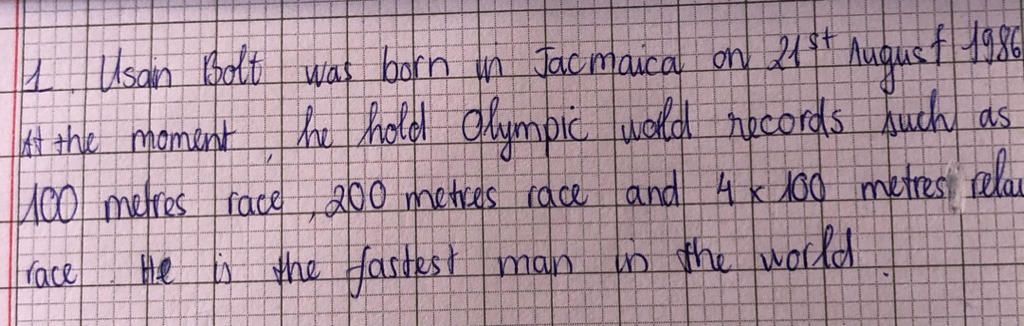 1. Usain Bolt was born in Jacmaica on 21st August 1986
At the moment, he hold Olympic world records such as
100 metres race, 200 metres race and 4 x 100 metres relay
race. He is the fastest man in the world.